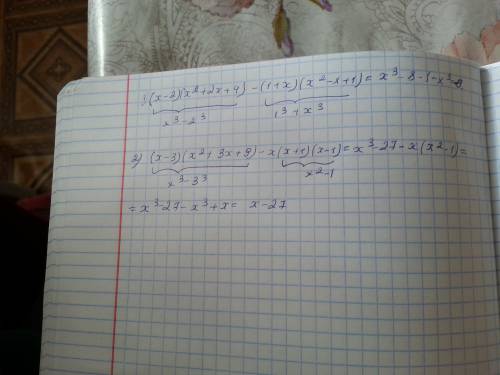 1) (x-2)(x²+2x+4)-(1+x)(x²-x+1)= x³-8-1-x³=-9.
x³-2³ 1³+x³
2) (x-3)(x²+3x+9)-x(x+1)(x-1)= x³-27-x(x²-1)=
x³-3³ x²-1
= x³-27-x³+x= x-27